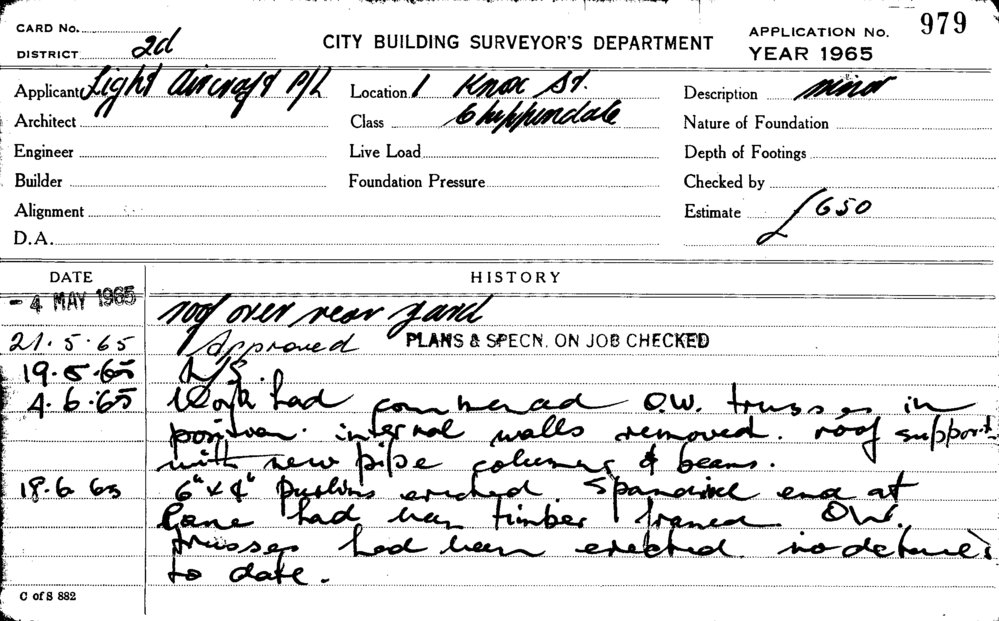 CARD No.
DISTRICT 2d
CITY BUILDING SURVEYOR'S DEPARTMENT
APPLICATION No. 979
YEAR 1965
Applicant Light Aircraft P/L
Location 1 Knox St.
Description minor
Architect
Class Chippendale
Nature of Foundation
Engineer
Live Load
Depth of Footings
Builder
Foundation Pressure
Checked by
Alignment
Estimate £650
D.A.
DATE
HISTORY
- 4 MAY 1965
roof over rear yard
21.5.65 Approved PLANS & SPECN. ON JOB CHECKED
19.5.65 N/S.
4.6.65 Work had commenced O.W. trusses in
position. internal walls removed. roof support
with new pipe columns & beams.
18.6 65 6" x 4" Purlins erected. Spandrel end at
Lane had been timber framed. O.W.
trusses had been erected. no
to date.
C of S 882